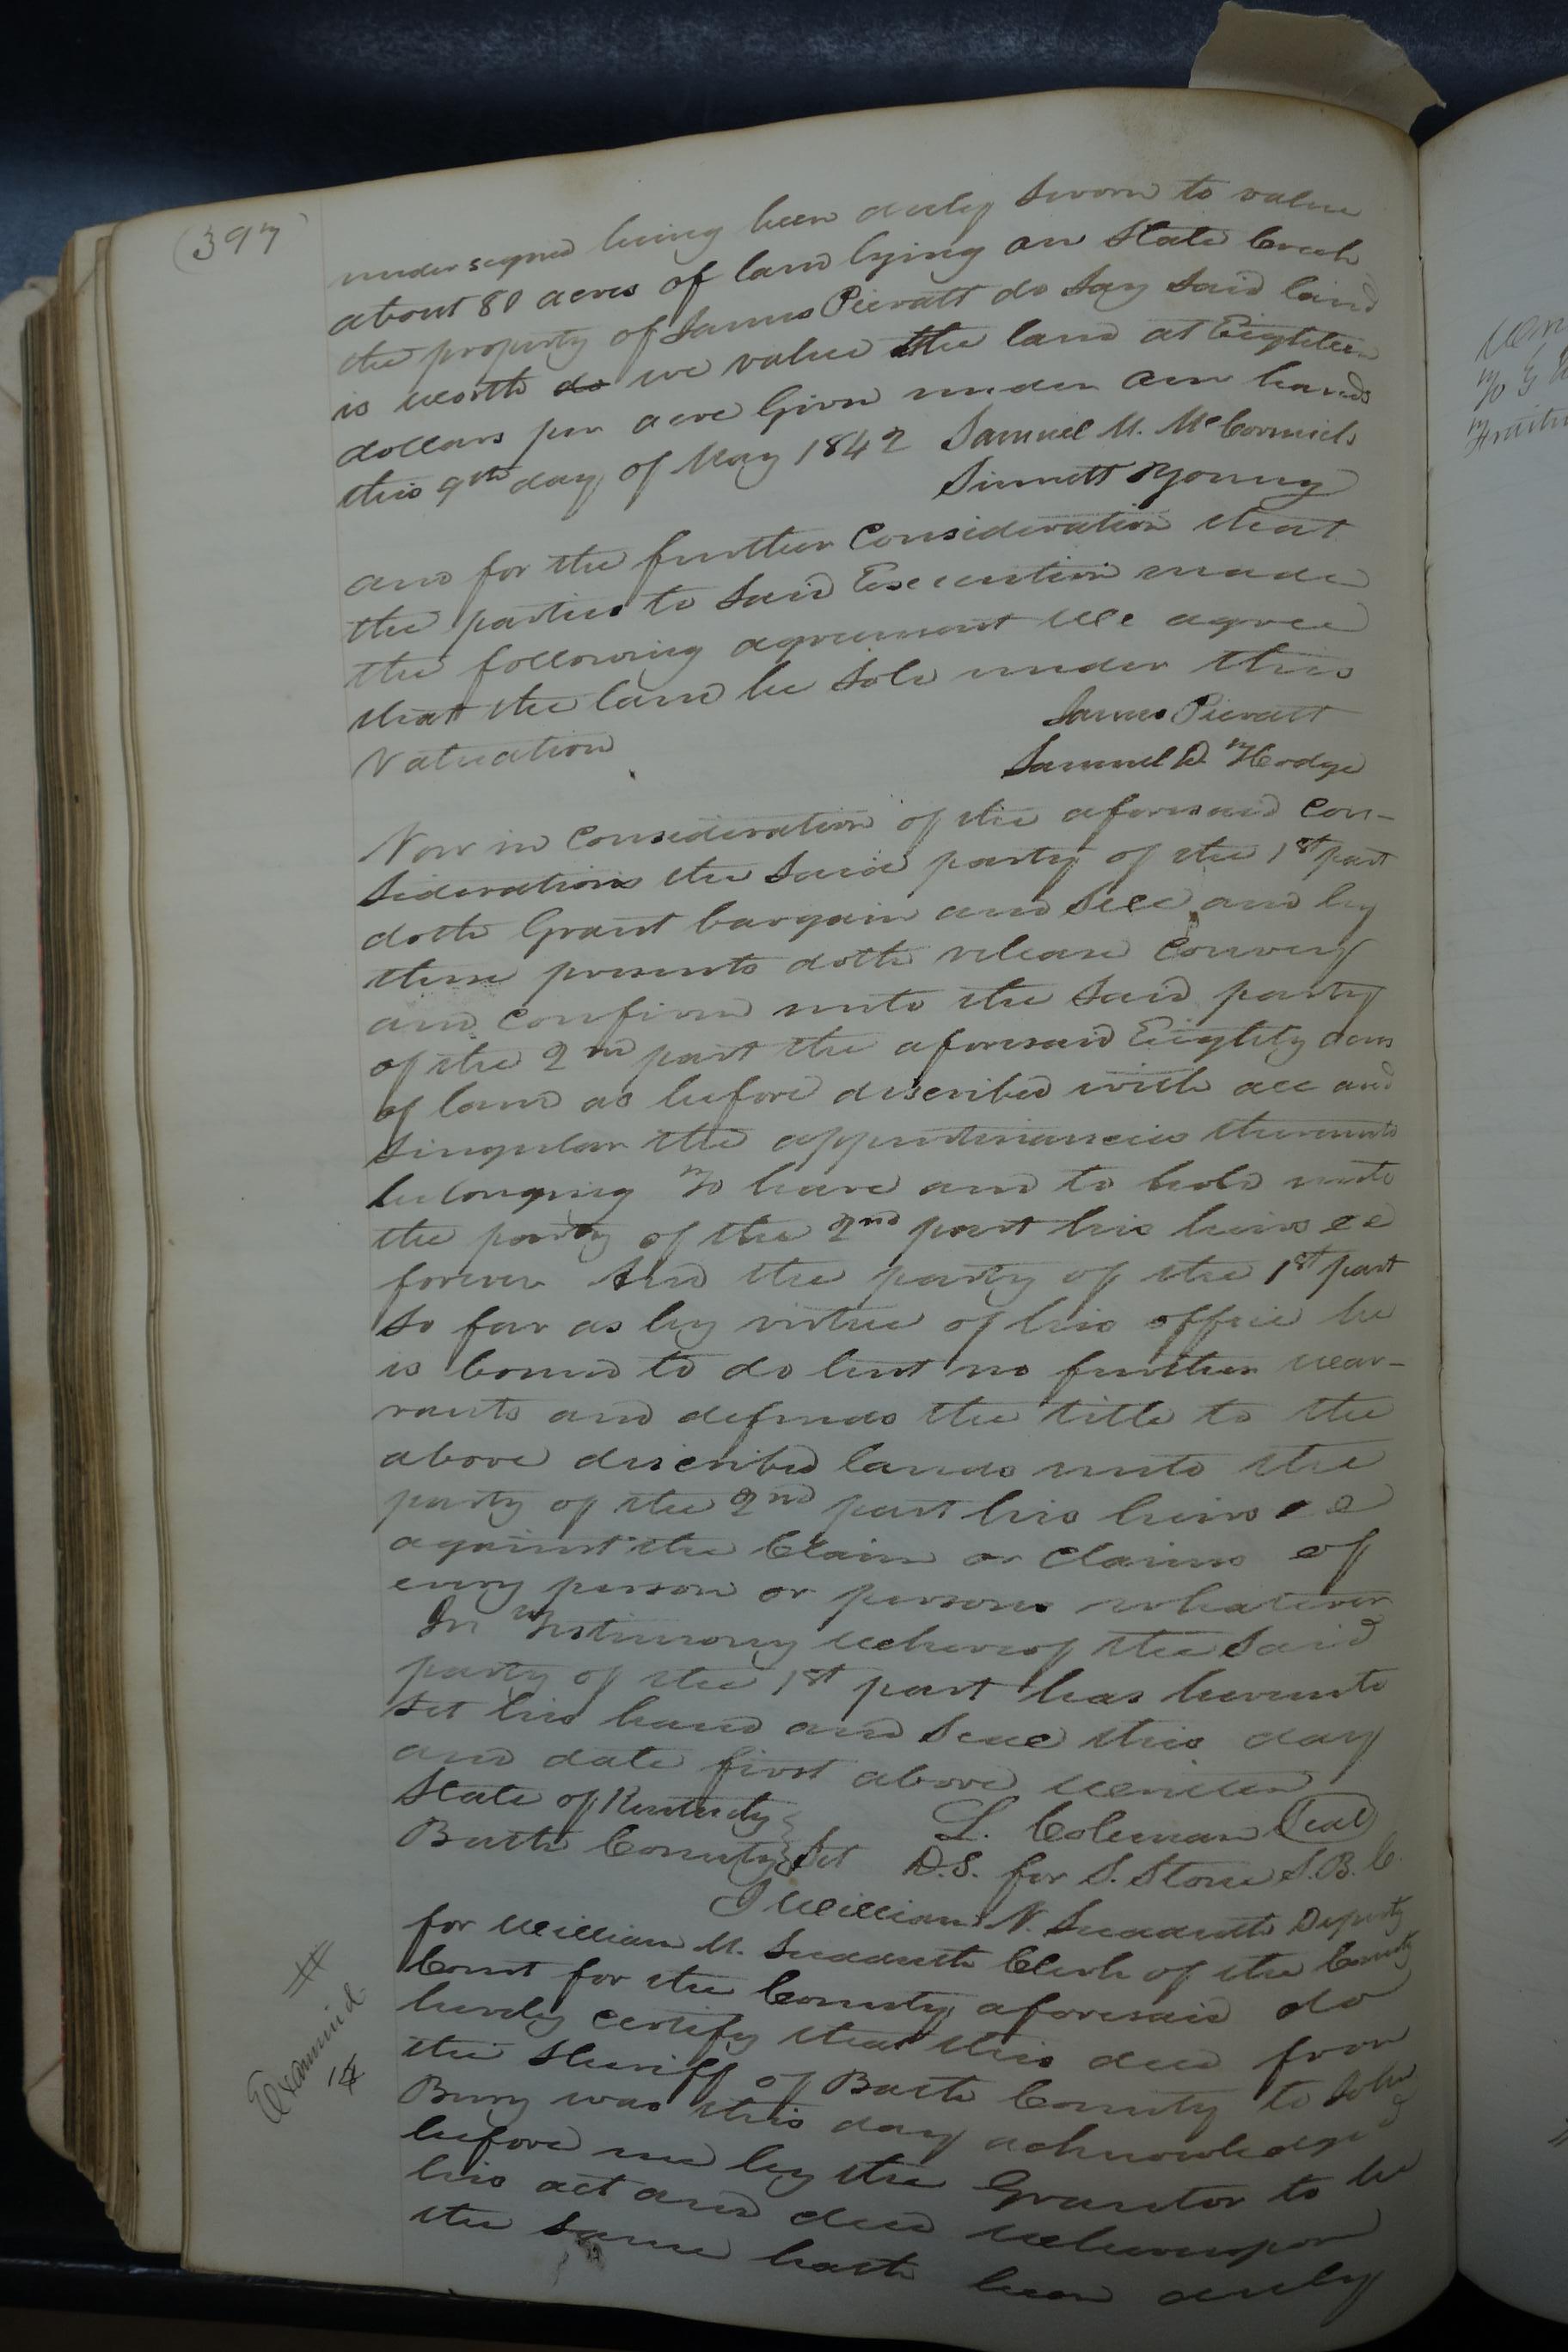 (397)
undersigned being been duly Sworn to value
about 80 acres of land lying on State Creek
the property of James Pieratt do Say Said land
is worth do we value the land at Eighteen
dollars per acre Given under our hands
this 9th day of May 1842 Samuel M. McCormick
Sinnett Young
and for the further Consideration that
the parties to Said Execution made
the following agreement We agree
that the land be Sold under this
Valuation
James Pieratt
Samuel D. Hodge
Now in Consideration of the aforesaid Con-
siderations the Said party of the 1st part
doth Grant bargain and Sell and by
these presents doth release Convey
and Confirm unto the Said party
of the 2nd part the aforesaid Eighty acres
of land as before discribed with all and
Singular the appurtinancies thereunto
belonging To have and to hold unto
the party of the 2nd part his heirs &c
forever And the party of the 1st part
So far as by virtue of his office he
is bound to do but no further war-
rants and defends the title to the
above discribed lands unto the
party of the 2nd part his heirs &c
against the Claim or Claims of
every person or persons whatever
In Testimony Whereof the Said
party of the 1st part has hereunto
Set his hand and Seal this day
and date first above written
State of Kentucky
L. Coleman (Seal)
Bath County Sct D.S. for S. Stone S.B.C.
I William N. Sudduth Deputy
for William M. Sudduth Clerk of the County
Court for the County aforesaid do
hereby certify that this deed from
the Sheriff of Bath County to John
Burry was this day acknowledged
before me by the Grantor to be
his act and deed Whereupon
the same hath been duly
Examined